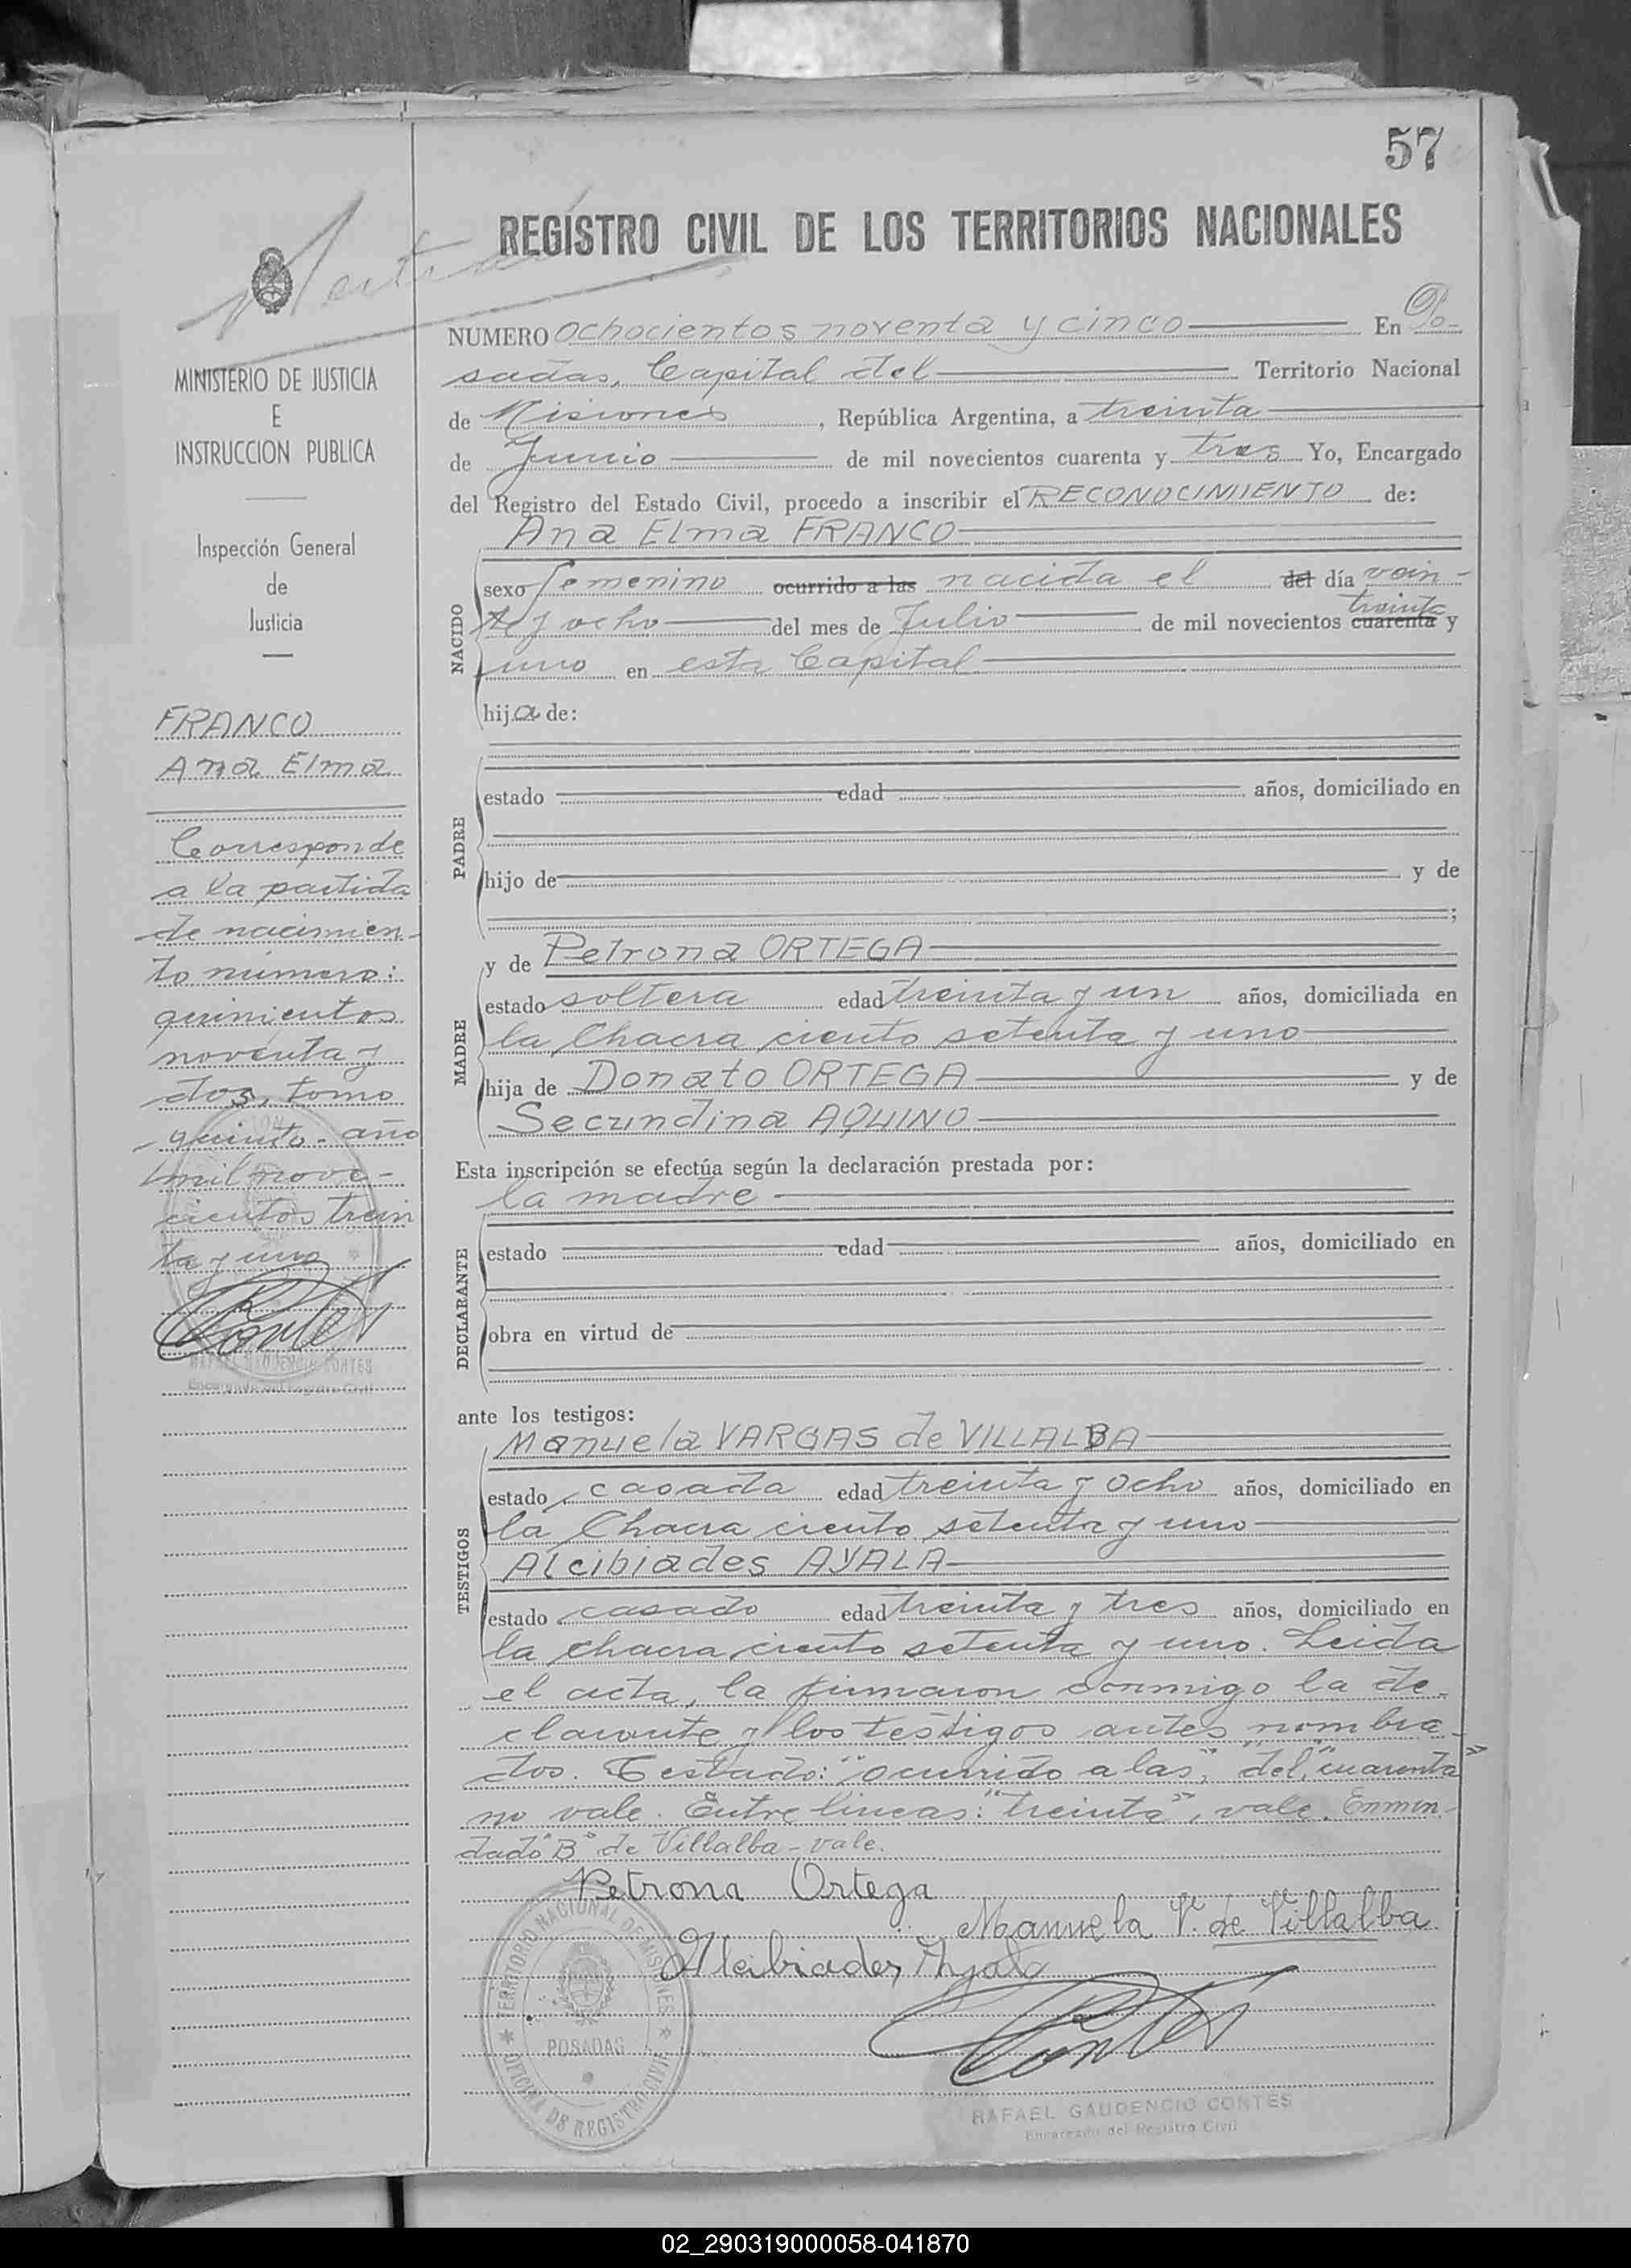 57
REGISTRO CIVIL DE LOS TERRITORIOS NACIONALES
MINISTERIO DE JUSTICIA
E
INSTRUCCION PUBLICA
Inspección General
de
Justicia
FRANCO
Ana Elma
Corresponde
a la partida
de nacimien-
to número:
quinientos
noventa y
dos, tomo
quinto - año
mil nove-
cientos trein
ta y uno
R Cortés
RAFAEL GAUDENCIO CORTES
Encargado del Registro Civil
NUMERO ochocientos noventa y cinco En Po-
sadas, Capital del Territorio Nacional
de Misiones, República Argentina, a treinta
de Junio de mil novecientos cuarenta y tres Yo, Encargado
del Registro del Estado Civil, procedo a inscribir el RECONOCIMIENTO de:
Ana Elma FRANCO
NACIDO
sexo femenino ocurrido a las nacida el del día vein-
te y ocho del mes de Julio de mil novecientos cuarenta treinta y
uno en esta Capital
hija de:
PADRE
estado edad años, domiciliado en
hijo de y de
;
y de Petrona ORTEGA
MADRE
estado soltera edad treinta y un años, domiciliada en
la Chacra ciento setenta y uno
hija de Donato ORTEGA y de
Secundina AQUINO
Esta inscripción se efectúa según la declaración prestada por:
la madre
DECLARANTE
estado edad años, domiciliado en
obra en virtud de
ante los testigos:
Manuela VARGAS de VILLALBA
TESTIGOS
estado casada edad treinta y ocho años, domiciliado en
la Chacra ciento setenta y uno
Alcibiades AYALA
estado casado edad treinta y tres años, domiciliado en
la chacra ciento setenta y uno. Leida
el acta, la firmaron conmigo la de-
clarante y los testigos antes nombra-
dos. Testado: "ocurrido a las", "del", "cuarenta"
no vale. Entre lineas: "treinta", vale. Enmen-
dado "B" de Villalba - vale.
Petrona Ortega
Manuela V. de Villalba
Alcibiades Ayala
R Cortés
TERRITORIO NACIONAL DE MISIONES
POSADAS
OFICINA DE REGISTRO CIVIL
RAFAEL GAUDENCIO CORTES
Encargado del Registro Civil
02_290319000058-041870